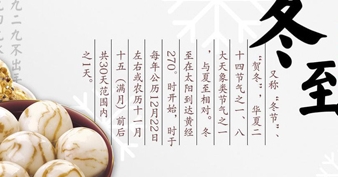 冬至
又称“冬节”、
“贺冬”,华夏二
十四节气之一、八
大天象类节气之一
,与夏至相对。冬
至在太阳到达黄经
270。时开始,时于
每年公历12月22日
左右或农历十一月
十五(满月)前后
共30天范围内
之1天。
九二九不出